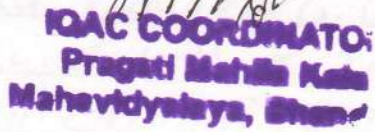 IQAC COORDINATOR
Pragati Mahila Kala
Mahavidyalaya, Bhand